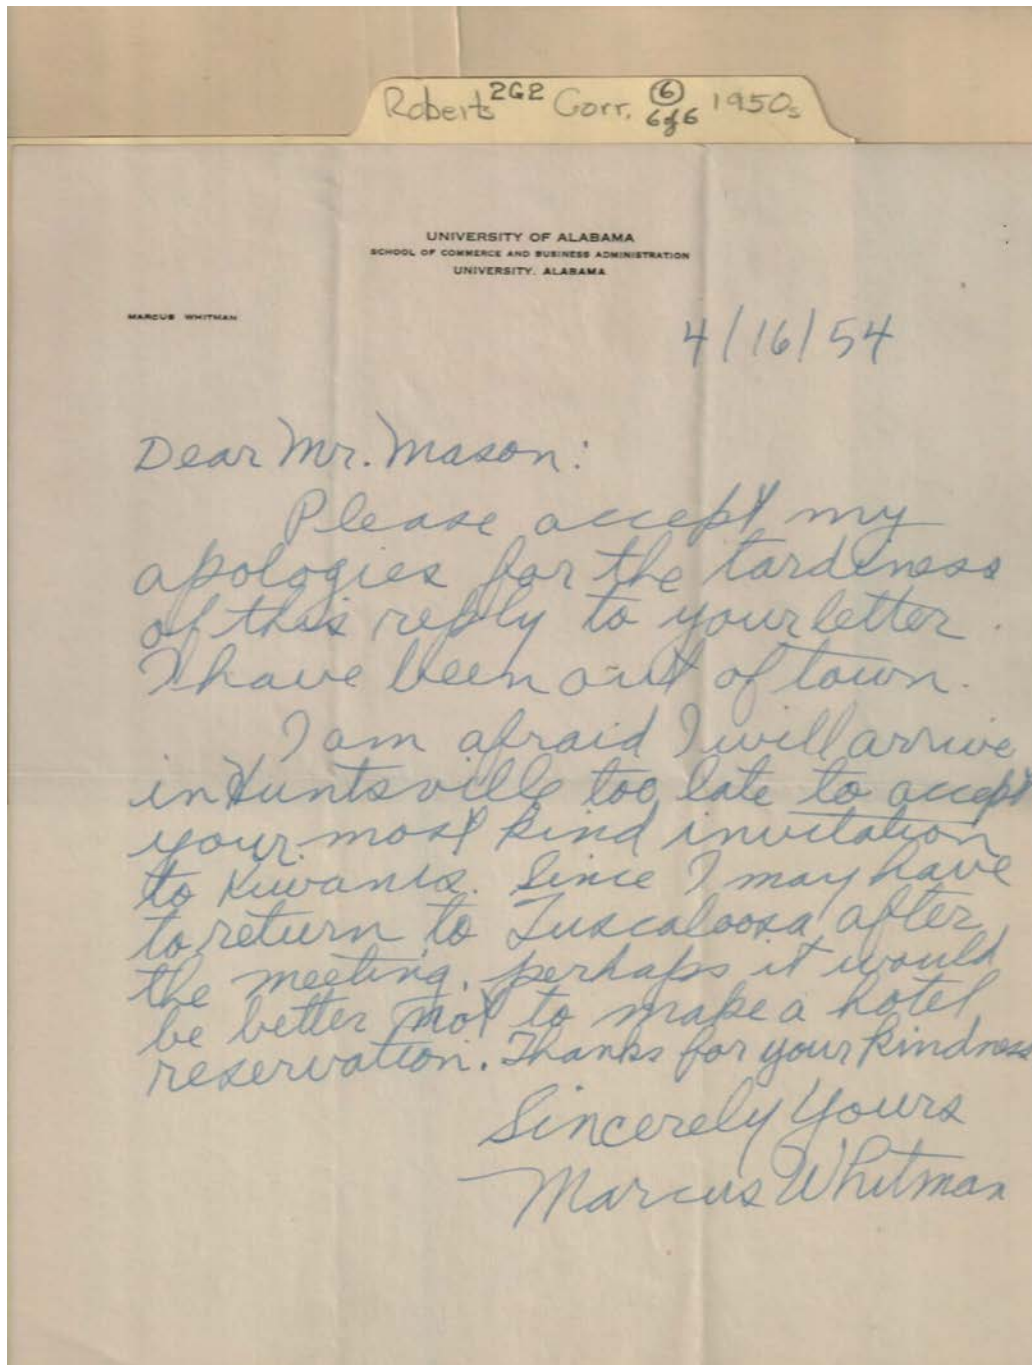 Roberts 2G2 Corr. 6 6 of 6 1950s
UNIVERSITY OF ALABAMA
SCHOOL OF COMMERCE AND BUSINESS ADMINISTRATION
UNIVERSITY, ALABAMA
MARCUS WHITMAN
4/16/54
Dear Mr. Mason:
Please accept my
apologies for the tardiness
of this reply to your letter.
I have been out of town.
I am afraid I will arrive
in Huntsville too late to accept
your most kind invitation
to Kiwanis. Since I may have
to return to Tuscaloosa after
the meeting, perhaps it would
be better not to make a hotel
reservation. Thanks for your kindness
Sincerely Yours
Marcus Whitman